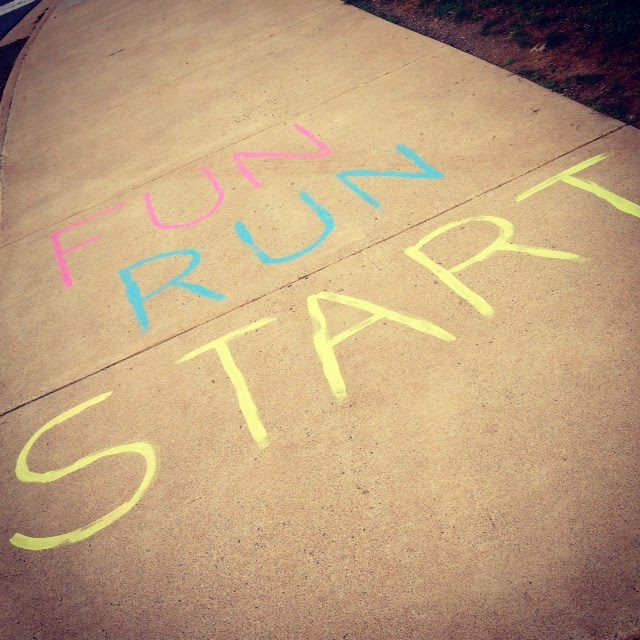 FUN
RUN
START